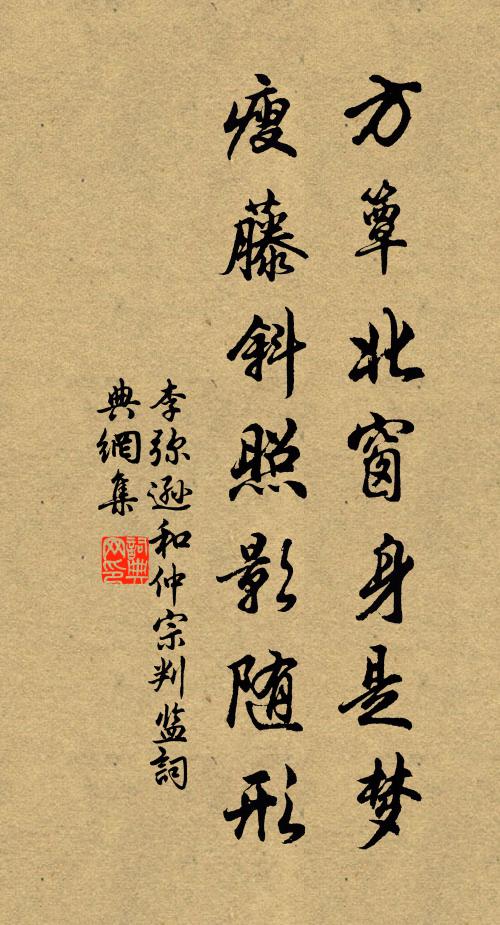 方簟北窗身是梦
瘦藤斜照影随形
李弥逊和仲宗判监詞
典網集
詞典网印